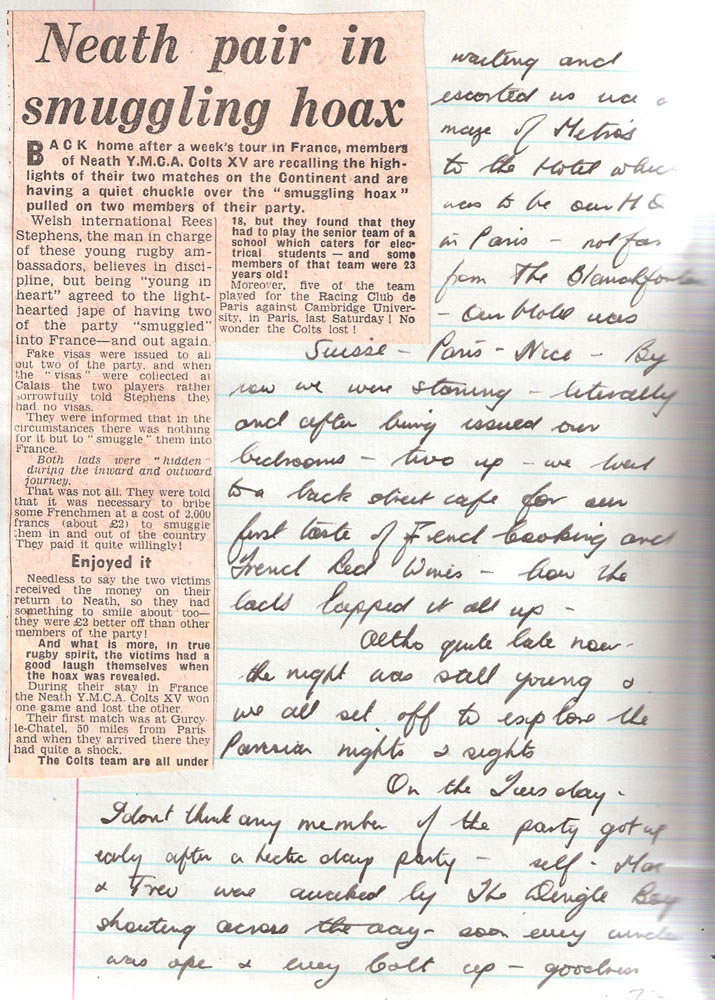 Neath pair in
smuggling hoax
BACK home after a week's tour in France, members
of Neath Y.M.C.A. Colts XV are recalling the high-
lights of their two matches on the Continent and are
having a quiet chuckle over the "smuggling hoax"
pulled on two members of their party.
Welsh international Rees
Stephens, the man in charge
of these young rugby am-
bassadors, believes in disci-
pline, but being "young in
heart" agreed to the light-
hearted jape of having two
of the party "smuggled"
into France—and out again.
Fake visas were issued to all
but two of the party, and when
the "visas" were collected at
Calais the two players rather
sorrowfully told Stephens they
had no visas.
They were informed that in the
circumstances there was nothing
for it but to "smuggle" them into
France.
Both lads were "hidden"
during the inward and outward
journey.
That was not all. They were told
that it was necessary to bribe
some Frenchmen at a cost of 2,000
francs (about £2) to smuggle
them in and out of the country
They paid it quite willingly!
Enjoyed it
Needless to say the two victims
received the money on their
return to Neath, so they had
something to smile about too—
they were £2 better off than other
members of the party!
And what is more, in true
rugby spirit, the victims had a
good laugh themselves when
the hoax was revealed.
During their stay in France
the Neath Y.M.C.A. Colts XV won
one game and lost the other.
Their first match was at Gurcy-
le-Chatel, 50 miles from Paris
and when they arrived there they
had quite a shock.
The Colts team are all under
18, but they found that they
had to play the senior team of a
school which caters for elec-
trical students — and some
members of that team were 23
years old!
Moreover, five of the team
played for the Racing Club de
Paris against Cambridge Univer-
sity, in Paris, last Saturday! No
wonder the Colts lost!
waiting and
escorted us
maze of Metro's
to the Hotel which
was to be our H Q
in Paris - not far
from The
- Our Hotel was
Suisse - Paris - Nice - By
now we were starving - literally
and after being issued our
bedrooms - two up - we went
to a back street cafe for our
first taste of French cooking and
French Red Wines - how the
lads lapped it all up -
Altho quite late now -
the night was still young &
we all set off to explore the
Parisian nights & sights
On the Tuesday -
I dont think any member of the party got up
early after a hectic days party - self - Mac
& Trev were awaked by The Dingle Boy
shouting across the way - soon every
was ope & every bolt up - goodness